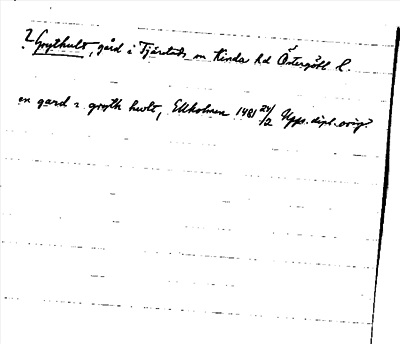 ? Grythult, gård i Tjärstads sn Kinda hd Östergötl l.
en gard i gryth hwlt, Ekholmen 1481 24/2 Upps. dipl. orig?